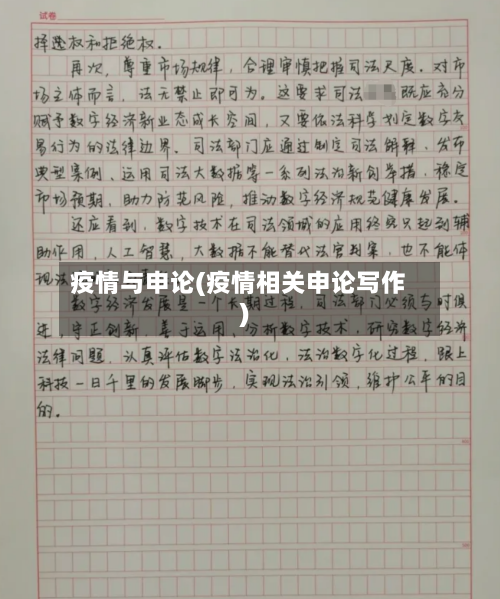 试卷
择选权和拒绝权.
再次,尊重市场规律,合理审慎把握司法尺度。对市
场主体而言,法无禁止即可为。这要求司法 既应充分
赋予数字经济新业态成长空间,又要依法科学划定数字交
易行为的法律边界。司法部门应通过制定司法解释、发布
典型案例、运用司法大数据等一系列法治新创举措,稳定
市场预期,助力防范风险,推动数字经济规范健康发展。
还应看到,数字技术在司法领域的应用终究只起到辅
助作用,人工智慧,大数据不能替代法官判案,也不能体
现法
疫情与申论(疫情相关申论写作
)
数字经济发展是一个长期过程,司法部门必须与时俱
进,守正创新,善于运用、分析数字技术,研究数字经济
法律问题,认真评估数字法治化,法治数字化过程,跟上
科技一日千里的发展脚步,实现法治引领,维护公平的目
的。